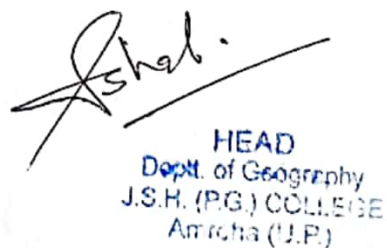 HEAD
Deptt. of Geography
J.S.H. (P.G.) COLLEGE
Amroha (U.P.)